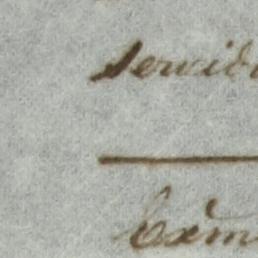 servido
Exm